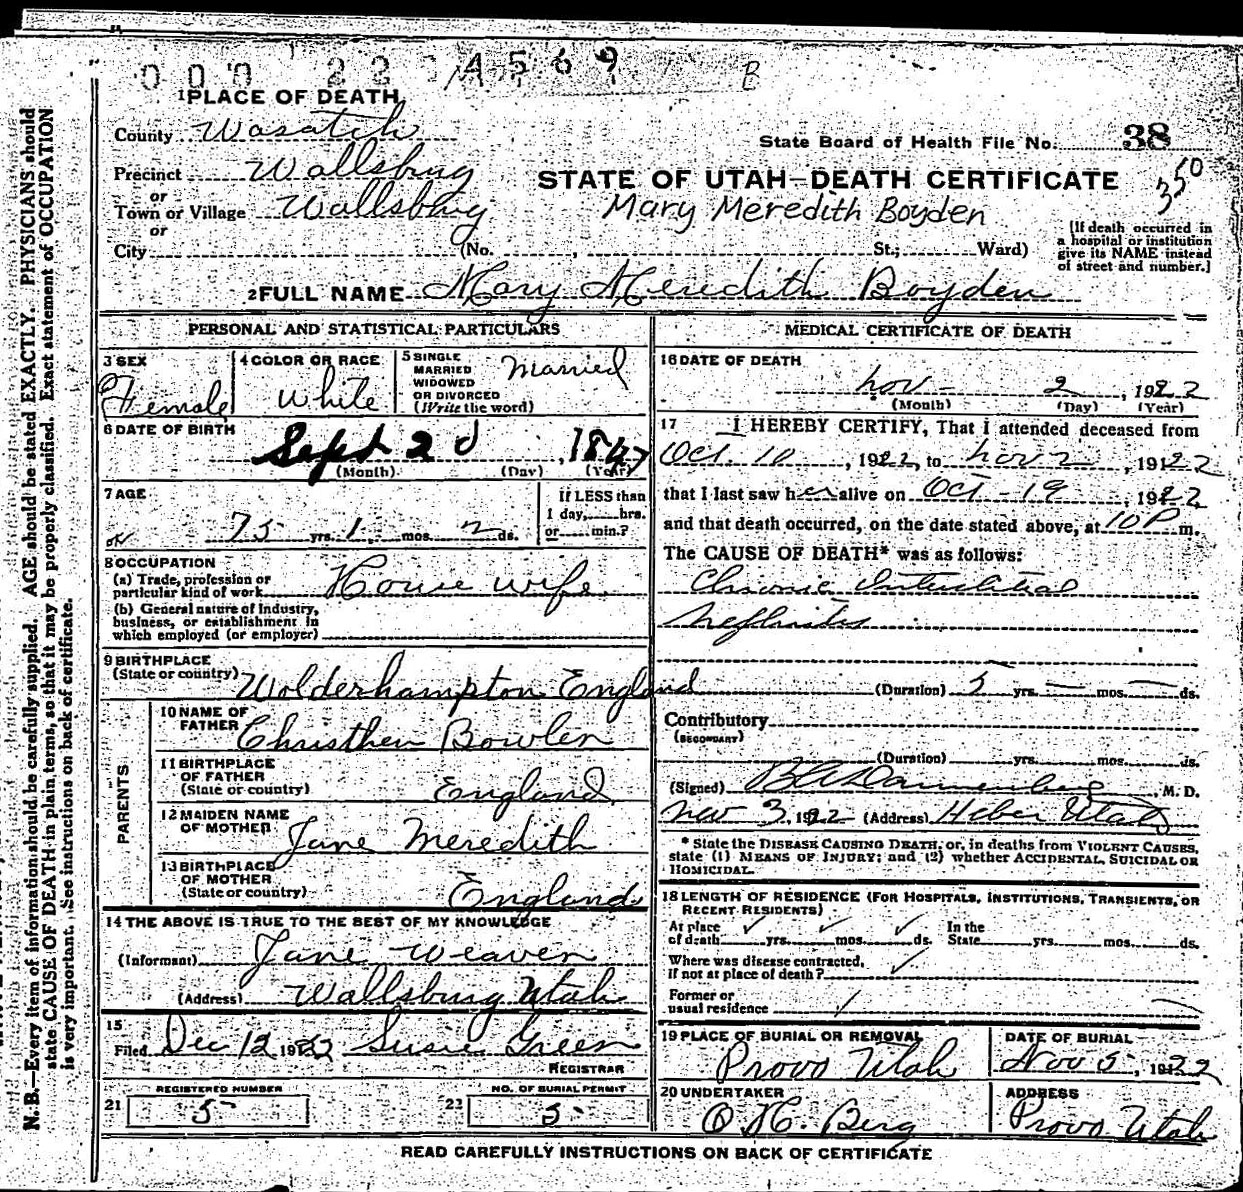 000 22 4569 B
1 PLACE OF DEATH
County Wasatch
State Board of Health File No. 38
Precinct Wallsburg
350
or
STATE OF UTAH—DEATH CERTIFICATE
Town or Village Wallsburg
Mary Meredith Boyden
or
City (No. , St.; Ward)
[If death occurred in
a hospital or institution
give its NAME instead
of street and number.]
2 FULL NAME Mary Meredith Boyden
PERSONAL AND STATISTICAL PARTICULARS
3 SEX
Female
4 COLOR OR RACE
White
5 SINGLE
MARRIED
WIDOWED
OR DIVORCED
(Write the word)
Married
6 DATE OF BIRTH
Sept 2d, 1847
(Month) (Day) (Year)
7 AGE
75 yrs. 1 mos. 2 ds.
If LESS than
1 day, hrs.
or min.?
8 OCCUPATION
(a) Trade, profession or
particular kind of work House wife
(b) General nature of Industry,
business, or establishment in
which employed (or employer)
9 BIRTHPLACE
(State or country) Wolderhampton England
PARENTS
10 NAME OF
FATHER Christhen Bowlen
11 BIRTHPLACE
OF FATHER
(State or country) England
12 MAIDEN NAME
OF MOTHER Jane Meredith
13 BIRTHPLACE
OF MOTHER
(State or country) England
14 THE ABOVE IS TRUE TO THE BEST OF MY KNOWLEDGE
(Informant) Jane Weaver
(Address) Wallsburg Utah
15
Filed Dec 12 1922 Susie Green
REGISTRAR
REGISTERED NUMBER
21 5
NO. OF BURIAL PERMIT
22 5
MEDICAL CERTIFICATE OF DEATH
16 DATE OF DEATH
Nov 2, 1922
(Month) (Day) (Year)
17 I HEREBY CERTIFY, That I attended deceased from
Oct. 10, 1922, to Nov 2, 1922
that I last saw her alive on Oct - 19, 1922,
and that death occurred, on the date stated above, at 10 P m.
The CAUSE OF DEATH* was as follows:
Chronic Interstitial
Nephritis
(Duration) 5 yrs. — mos. — ds.
Contributory
(SECONDARY)
(Duration) yrs. mos. ds.
(Signed) Dannenberg, M. D.
Nov 3, 1922 (Address) Heber Utah
* State the DISEASE CAUSING DEATH, or, in deaths from VIOLENT CAUSES,
state (1) MEANS OF INJURY; and (2) whether ACCIDENTAL, SUICIDAL OR
HOMICIDAL.
18 LENGTH OF RESIDENCE (FOR HOSPITALS, INSTITUTIONS, TRANSIENTS, OR
RECENT RESIDENTS)
At place
of death yrs. mos. ds.
In the
State yrs. mos. ds.
Where was disease contracted,
if not at place of death?
Former or
usual residence
19 PLACE OF BURIAL OR REMOVAL
Provo Utah
DATE OF BURIAL
Nov 5, 1922
20 UNDERTAKER
O. H. Berg
ADDRESS
Provo Utah
READ CAREFULLY INSTRUCTIONS ON BACK OF CERTIFICATE
N. B.—Every item of information should be carefully supplied. AGE should be stated EXACTLY. PHYSICIANS should
state CAUSE OF DEATH in plain terms, so that it may be properly classified. Exact statement of OCCUPATION
is very important. See instructions on back of certificate.